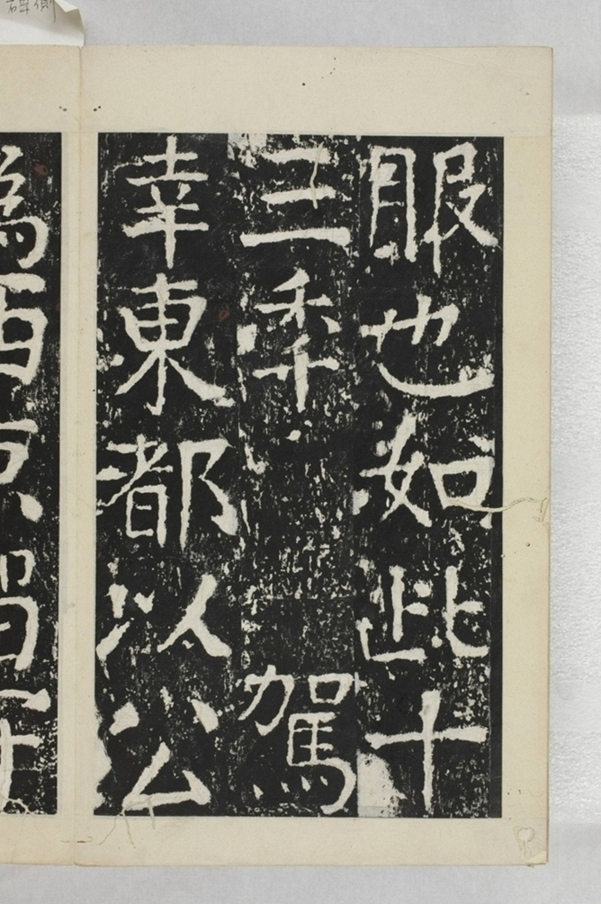 服也如此十
三秊駕
幸東都以公
為西京留守
碑側